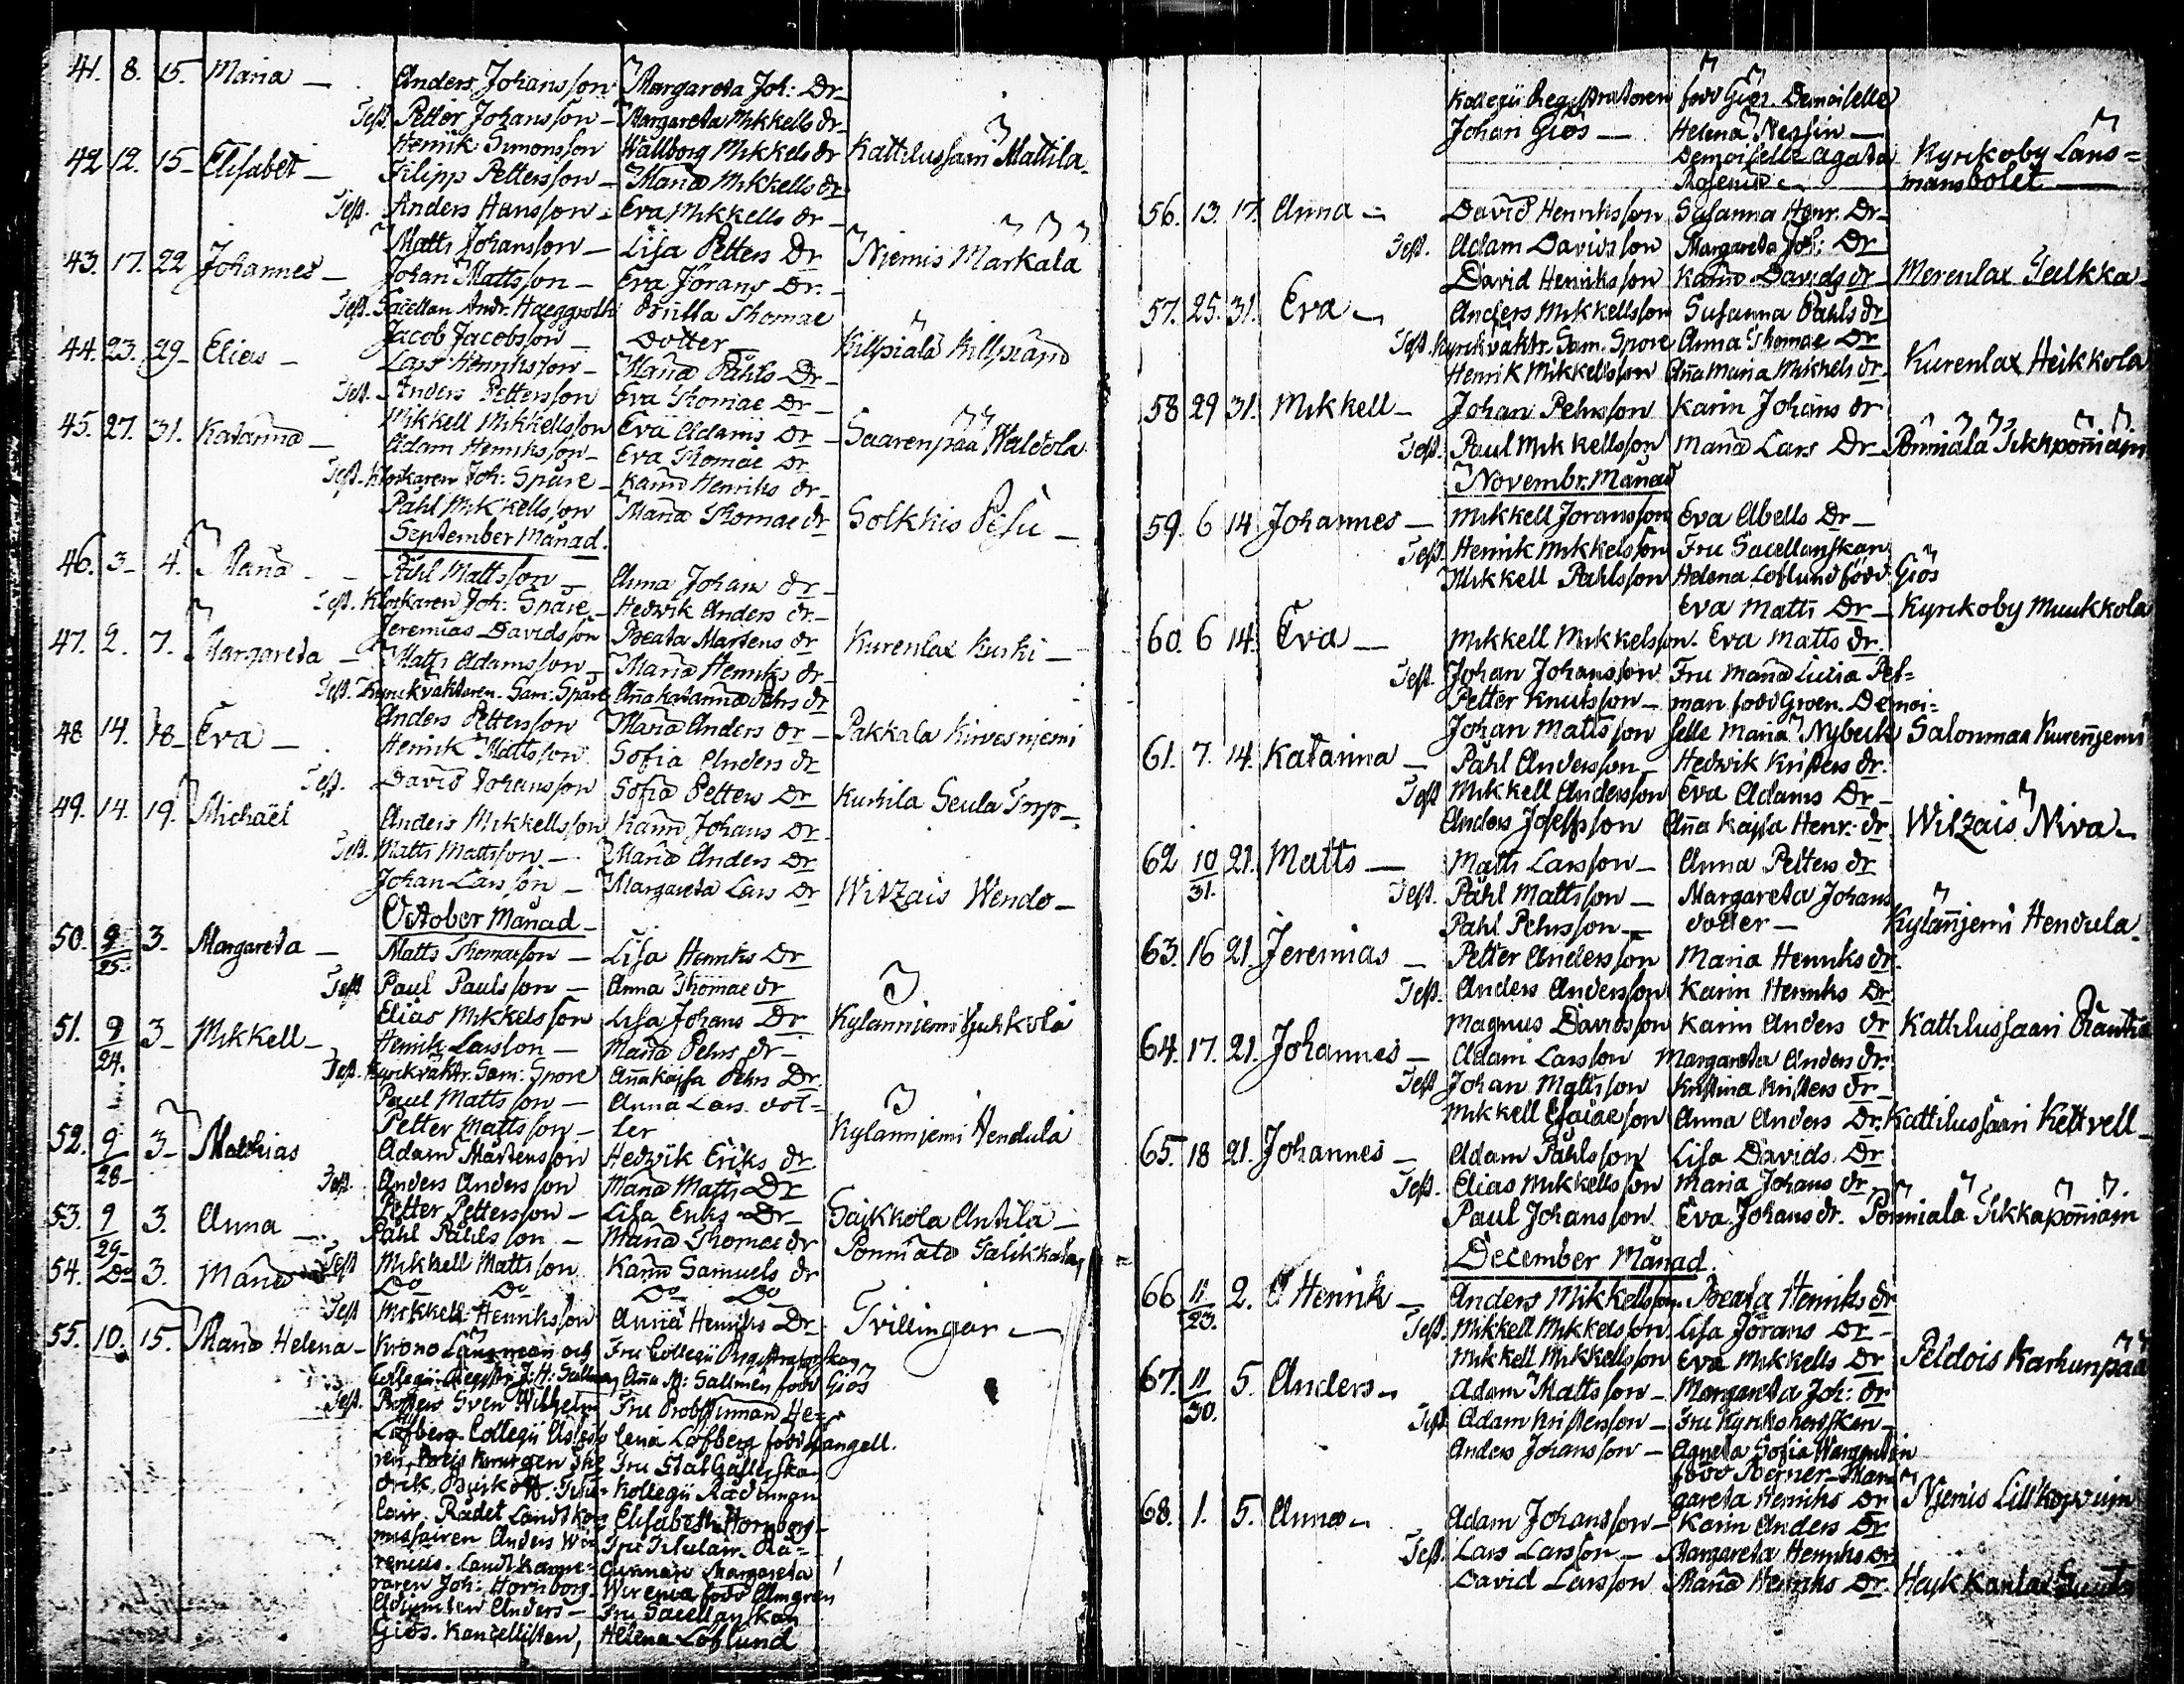 41. 8. 15. Maria — Anders Johansson Margareta Joh: Dr
Test. Petter Johansson — Margareta Mikkells dr
Henrik Simonsson Wallborg Mikkels dr Kattilussari Mattila
42 12. 15 Elisabet — Filipp Pettersson — Maria Mikkells dr
Test. Anders Hansson — Eva Mikkells dr —
Matts Johansson — Lisa Petters Dr Njemis Markala
43. 17. 22 Johannes — Johan Mattsson — Eva Jörans Dr. —
Test. Sacellan Andr. Haeggroth Brilla Thomae
Jacob Jacobsson — Dotter — Killpiälä Killpiänd
44. 23. 29 Elias — Lars Henriksson — Maria Påhls Dr —
Test. Anders Pettersson Eva Thomae Dr —
Mikkell Mikkellsson Eva Adams Dr — Saarenpää Waldola
45. 27. 31. Katarina — Adam Henriksson — Eva Thomae Dr
Test. Klockaren Joh: Spåre — Karin Henriks dr —
Påhl Mikkellsson Maria Thomae dr Solkkis Pesu —
September Månad.
46. 3 — 4. Maria — Påhl Mattsson — Anna Johans dr —
Test. Klockaren Joh: Spåre — Hedwik Anders dr. —
Jeremias Davidsson Beata Martens dr Kurenlax Kuski —
47. 2. 7. Margareta — Matts Adamsson — Maria Henriks dr —
Test. Kyrckväktaren. Sam: Spåre Aña Katarina Pehrs dr
Anders Pettersson Maria Anders dr — Pakkala Kirvesnjemi
48 14. 18 Eva — Henrik Mattsson Sofia Anders dr
Test. David Johansson Sofia Petters Dr Kurkila Seula Torp —
49. 14. 19. Michaël Anders Mikkellsson Karin Johans Dr —
Test. Matts Mattsson — Maria Anders Dr
Johan Larsson — Margareta Lars Dr Witzais Wendo —
October Månad —
50. 9/25 3 — Margareta — Matts Thomaeson — Lisa Henriks Dr
Test Paul Paulsson — Anna Thomae dr
Elias Mikkelsson Lisa Johans Dr Kylanniemi
51. 9/24. 3 — Mikkell — Henrik Larsson — Maria Pehrs dr —
Test. Kyrckväktr. Sam: Spore Aña Kajsa Pehrs Dr
Paul Mattsson — Anna Lars. dot=
Petter Mattsson — ter Kylannjemi Hendula
52. 9/28 3 — Mathias Adam Mårtensson Hedwik Eriks dr
Test. Anders Andersson Maria Matts Dr
Petter Pettersson — Lisa Eriks Dr — Saikkola Antila —
53. 9/29 3. Anna — Påhl Påhlsson — Maria Thomae dr Ponniala Talikkala
Test Mikkell Mattsson Karin Samuels dr
54. Do 3. Maria Do Do Do Do
Test Mikkell Henriksson Anna Henriks Dr — Tvillingar —
55. 10. 15. Maria Helena — Krono Länsman och Fru Collegii Registratorskan
Collegii Regstr: J: H: Sallmen Aña M: Sallmén född Giös
Test. Sven Wilhelm Fru Probstinnan He=
Löfberg. Collegii lena Löfberg född Spangell.
Fru
drik, Kollegii Rådinnan
Rådet Landtkom Elisabeth Hornborg —
missairen Anders Wi Fru Titulair. Rå=
renius. Landtkamre= dinnan Margareta
raren Joh: Hornborg — Wirenia född Almgren
Adjuncten Anders — Fru Sacellanskan
Giös. Kancellisten, Helena Löflund
Kollegii Registratoren född Giös. Demoiselle
Johan Giös — Helena Nessin —
Demoiselle Agata Kyrkoby Läns=
Rosenius — mansbolet —
56. 13. 17. Anna — David Henriksson Susanna Henr. Dr —
Test. Adam Davidsson Margareta Joh: Dr
David Henriksson Karin Davids dr — Merenlax Tulkka
57. 25. 31. Eva — Anders Mikkellsson Susanna Påhls dr
Test Kyrckväktr. Sam. Spore Anna Thomae Dr
Henrik Mikkellsson Aña Maria Mikkels dr — Kurenlax Heikkola
58 29 31. Mikkell — Johan Pehrsson Karin Johans dr
Test. Paul Mikkellsson Maria Lars Dr — Ponniala Tikkaponniain
Novembr. Månad
59. 6 14 Johannes — Mikkell Joransson Eva Abells Dr —
Test. Henrik Mikkelsson Fru Sacellanskan
Mikkell Påhlsson Helena Löflund född Giös
Eva Matts Dr — Kyrckoby Muukkola
60. 6 14. Eva — Mikkell Mikkelsson. Eva Matts dr.
Test. Johan Johansson Fru Maria Lucia Pol=
Petter Knutsson — man född Groen. Demoi=
Johan Mattsson selle Maria Nybeck Salonmaa Kurennjemi
61. 7. 14. Katarina — Påhl Andersson — Hedwik Kristers dr.
Test Mikkell Andersson Eva Adams Dr —
Anders Josepsson Aña Kajsa Henr. dr Witzais Niva —
62 10/31. 21. Matts — Matts Larsson — Anna Petters dr
Test. Påhl Mattsson — Margareta Johans
Pahl Pehrsson — dotter — Kylannjemi Hendula.
63. 16 21. Jeremias — Petter Andersson Maria Henriks dr.
Test. Anders Andersson Karin Henriks Dr
Magnus Davidsson Karin Anders dr Kattilussaari Rantia
64. 17. 21. Johannes — Adam Larsson Margareta Anders dr.
Test Johan Mattsson Kristina Kristers dr —
Mikkell Esaiaeson Anna Anders Dr. Kattilussaari Kettvell —
65. 18 21. Johannes — Adam Påhlsson Lisa Davids Dr
Test. Elias Mikkellsson Maria Johans dr
Paul Johansson Eva Johans dr. Ponniala Tikkaponniain
December Månad.
66 11/23. 2. Henrik — Anders Mikkellsson. Beata Henriks dr
Test. Mikkell Mikkelsson Lisa Jörans Dr —
Mikkell Mikkellsson Eva Mikkells Dr Peldois Karhunpää
67. 11/30. 5. Anders — Adam Mattsson — Margareta Joh: dr
Test Adam Kristersson — Fru Kyrkoherdskan —
Anders Johansson — Agneta Sofia Wargentin
född Werner — Mar=
gareta Henriks Dr Njemis Lill
68. 1. 5. Anna — Adam Johansson — Karin Anders Dr
Test. Lars Larsson — Margareta Henriks Dr
David Larsson Maria Henriks Dr Haykkanlax